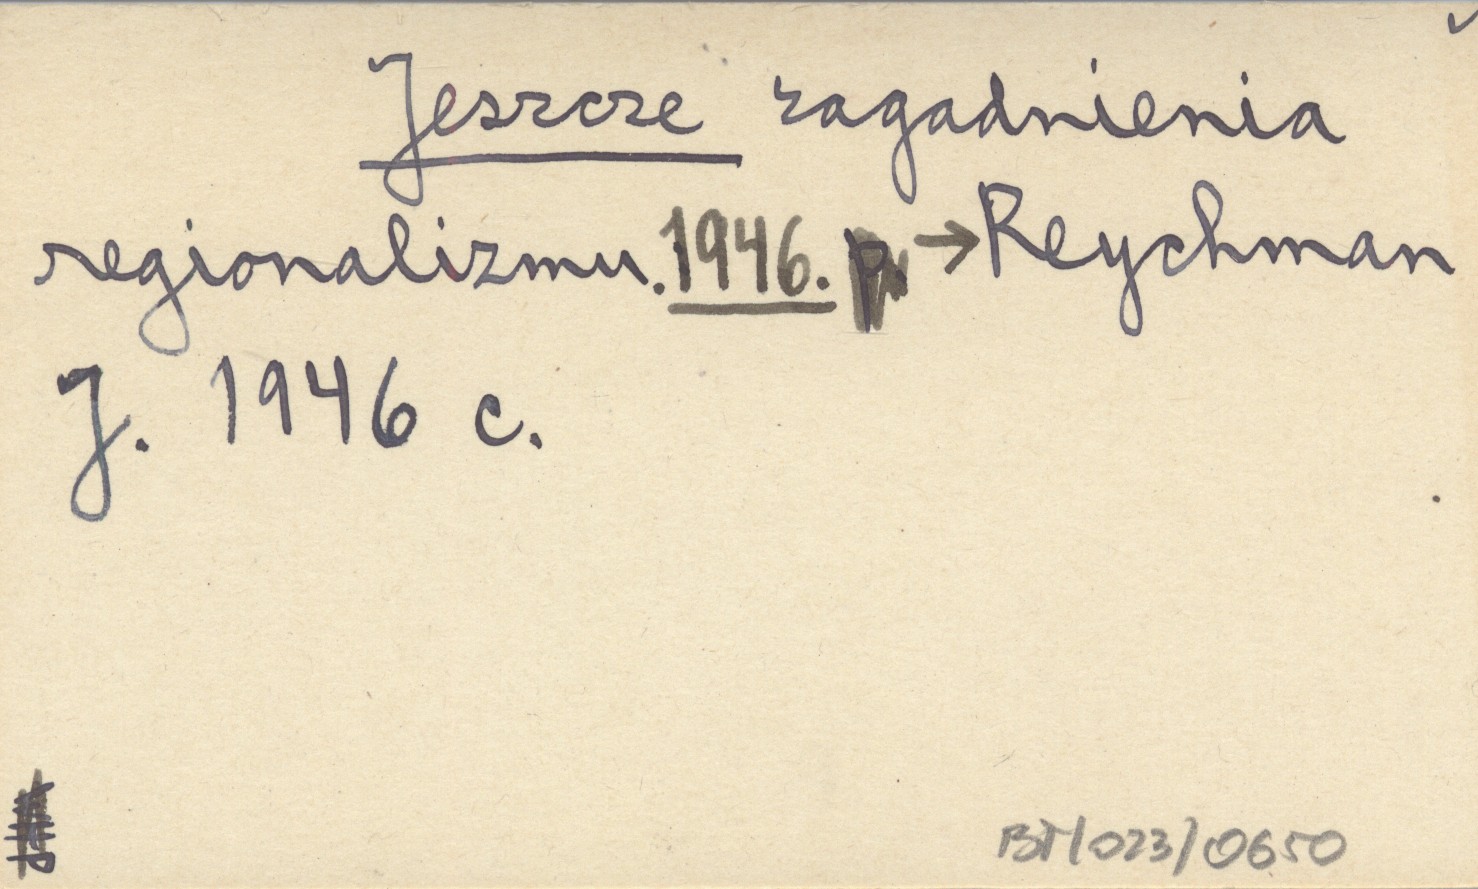 Jeszcze zagadnienia
regionalizmu. 1946. → Reychman
J. 1946 c.
BT/023/0650